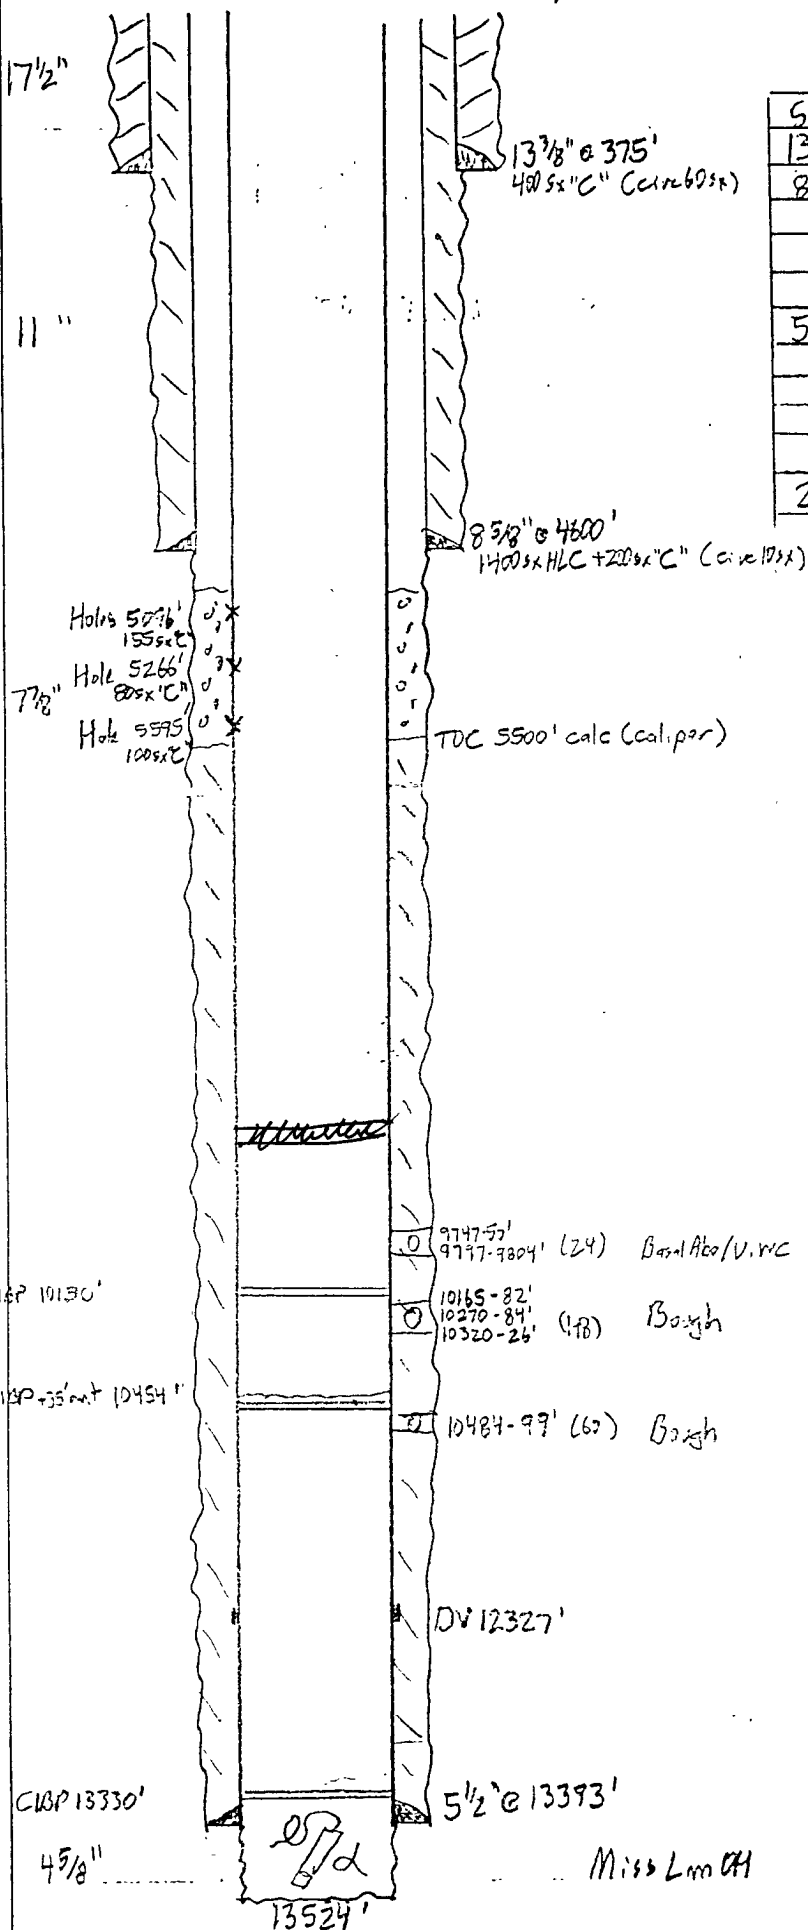 17½"
13⅜" @ 375'
400 sx "C" (circ 60 sx)
5
13
8
5
2
11"
8 5/8" @ 4600'
1400 sx HLC + 200 sx "C" (circ 10 sx)
Holes 5096'
155 sx "C"
Hole 5266'
80 sx "C"
7⅞"
Hole 5595'
100 sx "C"
TOC 5500' calc (caliper)
9747-57'
9797-9804' (24) Basal Abo/U. WC
10130'
10165-82'
10270-84'
10320-26' Bough
+35' cmt 10454'
10484-99' (60) Bough
DV 12327'
CIBP 13330'
5½" @ 13393'
4⅝"
Miss Lm OH
13524'